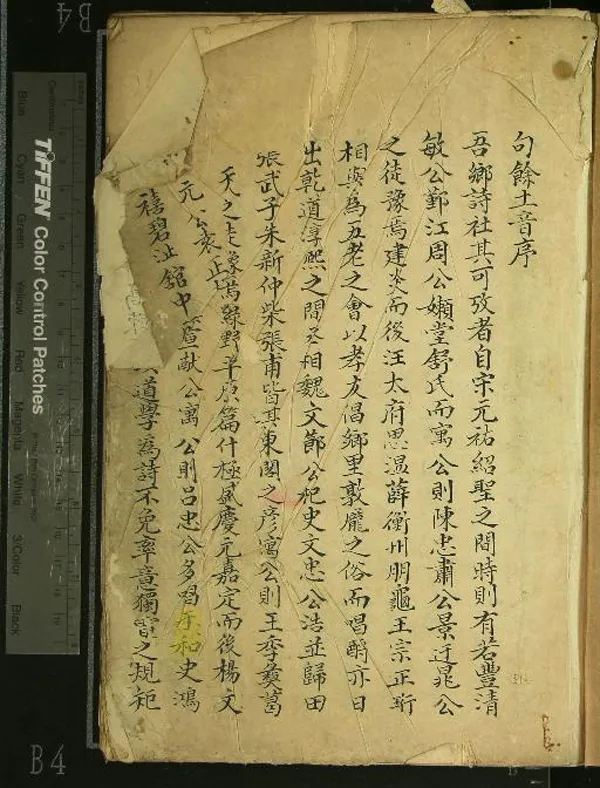 句餘土音序
吾鄉詩社其可攷者自宋元祐紹聖之間時則有若豐清
敏公鄞江周公嬾堂舒氏而寓公則陳忠肅公景迂晁公
之徒豫焉建炎而後汪太府思溫薛衡州朋龜王宗正珩
相與為五老之會以孝友倡鄉里敦龐之俗而唱酬亦日
出乾道淳熙之間丞相魏文節公杞史文忠公浩並歸田
張武子朱新仲柴張甫皆其東閣之彥寓公則王季彝葛
天之豫焉綠野平原篇什極盛慶元嘉定而後楊文
元公袁正獻公寓公則呂忠公多唱和史鴻
禧碧沚館中道學為詩不免率意獨之規矩
TIFFEN Color Control Patches
Blue Cyan Green Yellow Red Magenta White 3/Color Black
B4
B4